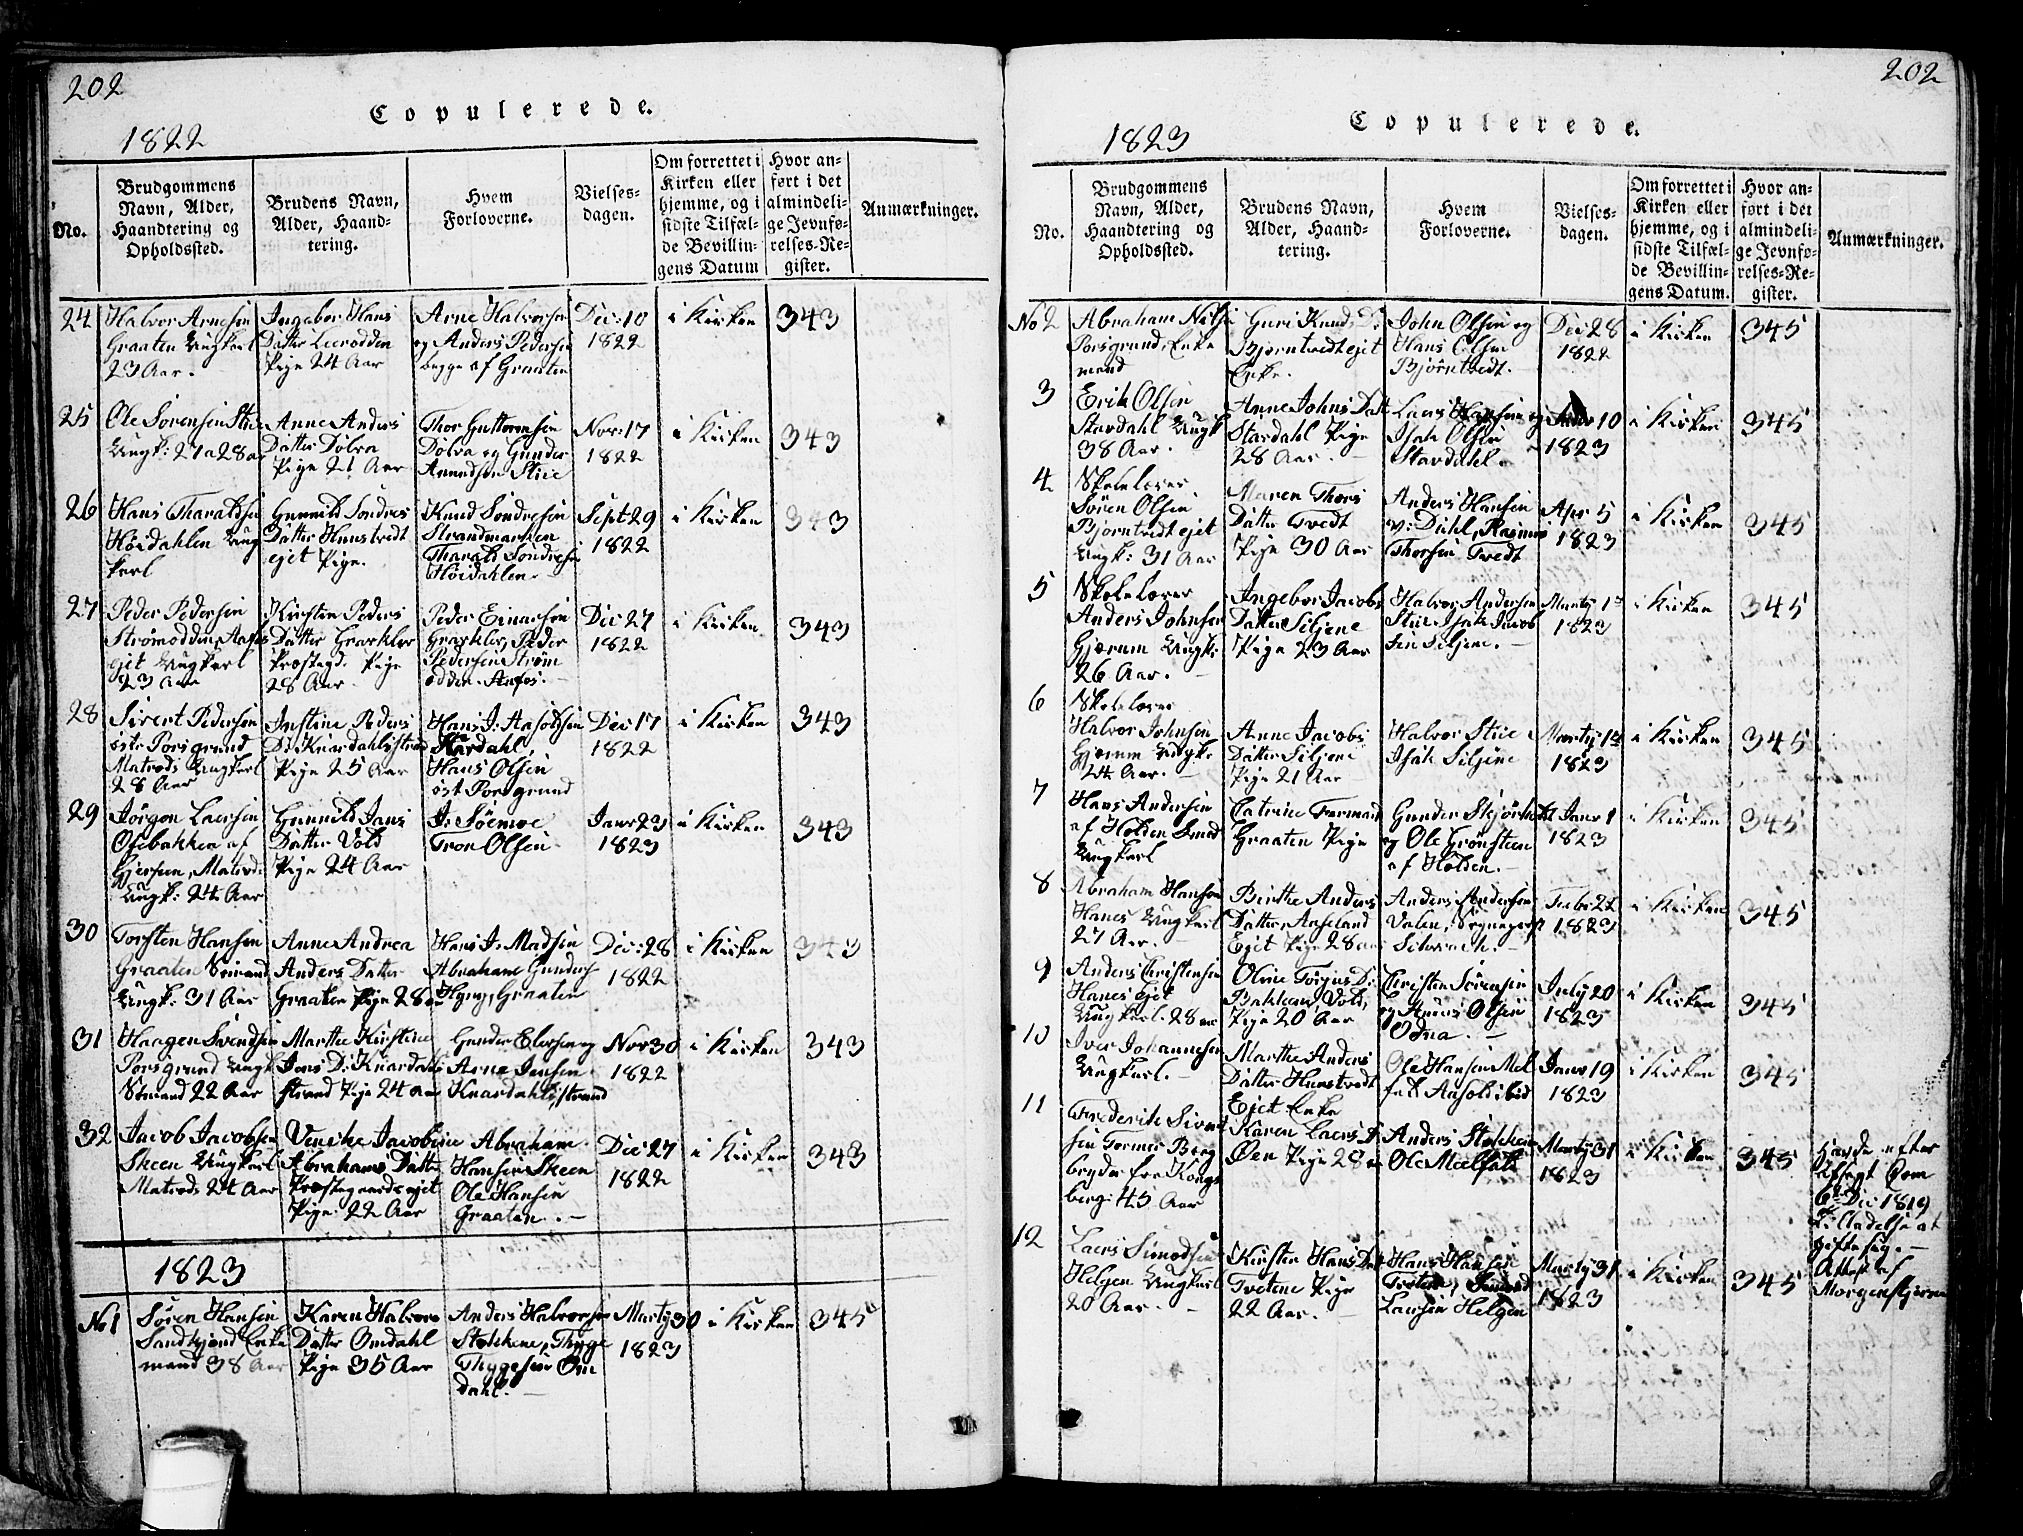 202
Copulerede.
1822
No.
Brudgommens
Navn, Alder,
Haandtering og
Opholdssted.
Brudens Navn,
Alder, Haand-
tering.
Hvem
Forloverne.
Vielses-
dagen.
Om forrettet i
Kirken eller
hjemme, og i
sidste Tilfæl-
de Bevillin-
gens Datum
Hvor an-
ført i det
almindeli-
ge Jevnfø-
relses-Re-
gister.
Anmærkninger.
24
Halvor Arnesen
Graaten Ungkarl
23 Aar.
Ingebor Hans
Datter Leerodden
Pige 24 Aar
Arne Halvorsen
og Anders Pedersen
begge af Graaten
Dec: 10
1822
i Kirken
343
25
Ole Sørensen Stie
Ungk: 27 a 28 aar
Anne Anders
Datter Dølva
Pige 21 Aar
Thor Guttormsen
Dølva og Gunder
Amundsen Stie
Nov: 17
1822
i Kirken
343
26
Hans Tharaldsen
Höidahlen Ung
karl
Gunnild Sondres
Datter Hunstvedt
ejet Pige.
Knud Sondresen
Strandmarken
Tharald Sondresen
Höidahlen
Sept 29
1822
i Kirken
343
27
Peder Pedersen
Strömodden
ejet Ungkarl
23 aar
Kirsten Peders
Datter Graxkler
Præstegd. Pige
28 Aar
Peder Einarsen
Graxkler, Peder
Pedersen Ström
odden
Dec: 27
1822
i Kirken
343
28
Sivert Pedersen
øst Porsgrund
Matrods Ungkarl
28 Aar
Justine Peders
D: Knardahlsstrand
Pige 25 Aar
Hans J. Aasoldsen
Hans Olsen
øst Porsgrund
Dec: 17
1822
i Kirken
343
29
Jörgen Laersen
Osebakken af
Gjersen, Matrod.
Ungk: 24 Aar
Gunnild Jans
Datter Vold
Pige 24 Aar
Tron Olsen
Janv 23
1823
i Kirken
343
30
Torsten Hansen
Graaten Sömand
Ungk: 31 Aar
Anne Andrea
Anders Datter
Graaten Pige 28 aar
Hans J. Madsen
Abraham Gunders
Graaten
Dec: 28
1822
i Kirken
343
31
Haagen Svendsen
Porsgrund Ungk
Sömand 22 Aar
Marthe Kirstine
Jans D: Knardahls
strand Pige 24 aar
Gunder Elersen og
Arne Jensen
Knardahlsstrand
Nov 30
1822
i Kirken
343
32
Jacob Jacobsen
Skeen Ungkarl
Matrods 24 Aar
Venche Jacobine
Abrahams Datter
Præstegaardsejet
Pige 22 Aar
Abraham
Hansen Skeen
Ole Hansen
Graaten.
Dec 27
1822
i Kirken
343
1823
No 1
Søren Hansen
Enke
mand 38 Aar
Karen Halvors
Datter Omdahl
Pige 35 Aar
Anders Halvorsen
Stokkene, Thyge
Thygesen Om
dahl.
Marty 30
1823
i Kirken
345
202
Copulerede.
1823
No.
Brudgommens
Navn, Alder,
Haandtering og
Opholdssted.
Brudens Navn,
Alder, Haand-
tering.
Hvem
Forloverne.
Vielses-
dagen.
Om forrettet i
Kirken eller
hjemme, og i
sidste Tilfæl-
de Bevillin-
gens Datum.
Hvor an-
ført i det
almindeli-
ge Jevnfø-
relses-Re-
gister.
Anmærkninger.
No 2
Abraham Nilsen
Porsgrund, Enke
mand
Guri Knuds D:
Bjørntvedt ejet
Enke.
John Olsen og
Hans Olsen
Bjørntvedt.
Dec 28
1822
i Kirken
345
3
Erik Olsen
Stavdahl Ungk
38 Aar.
Anne Johns Datt
Stavdahl Pige
28 Aar.
Lars Hansen og
Isak Olsen
Stavdahl.
10
1823
i Kirken
345
4
Skolelærer
Søren Olsen
Bjørntvedt ejet
Ungk: 31 Aar
Maren Thors
Datter Tvedt
Pige 30 Aar
Anders Hansen
v: Diehl, Rasmus
Thorsen Tvedt
Apr 5
1823
i Kirken
345
5
Skolelærer
Anders Johnsen
Gjærum Ungk:
26 Aar.
Ingebor Jacobs
Datter Siljene
Pige 23 Aar
Halvor Andersen
Stie Isak Jacob
sen Siljene.
Marty 1
1823
i Kirken
345
6
Skolelærer
Halvor Johnsen
Gjærum Ungk:
24 Aar.
Anne Jacobs
Datter Siljene
Pige 21 Aar
Halvor Stie
Isak Siljene
Marty 1
1823
i Kirken
345
7
Hans Andersen
af Holden Smed
Ungkarl
Catrine Forman
Graaten Pige
Gunder
og Ole Grønsteen
af Holden.
Janv 1
1823
i Kirken
345
8
Abraham Hansen
Hanes Ungkarl
27 Aar.
Birthe Anders
Datter Aaseland
Ejet Pige 28 aar
Anders Andersen
Valen,
Febr 22
1823
i Kirken
345
9
Anders Christensen
Hanes ejet
Ungkarl. 28 aar
Oline Torgius D:
Bakken Vold,
Pige 20 Aar
Christen Sörensen
og Olsen
Odna.
July 20
1823
i Kirken
345
10
Iver Johannesen
Ungkarl.
Marthe Anders
Datter Hunstvedt
Ejet Enke
Ole Hansen Mel
fald Aasold ibid
Janv 19
1823
i Kirken
345
11
Frederik Sivert
sen Former Berg
bryder fra Kongs
berg. 45 Aar
Karen Laers D
Øen Pige 28 a
Anders Stokken
Ole Mælfald
Marty 31
1823
i Kirken
345
Havde efter
Udsagt Dom
6te Dec 1819
Tilladelse at
gifte sig.
Attest af
Morgenstjerne
12
Laers Simodsen
Helgen Ungkarl
20 Aar.
Kirsten Hans Datt
Tvetene Pige
22 Aar.
Hans Hansen
Tvetene, Simod
Laersen Helgen
Marty 31
1823
i Kirken
345